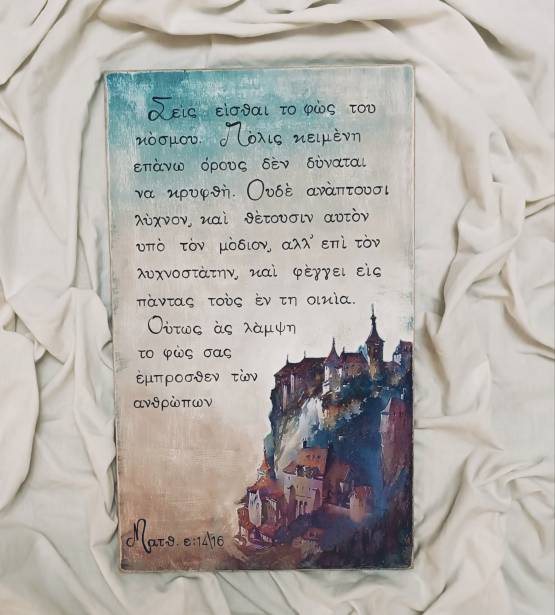 Σεις εἰσθαι το φὼς του
κὸσμου. Πὸλις κειμὲνη
επὰνω ὁρους δὲν δὺναται
να κρυφθὴ. Ουδὲ ανὰπτουσι
λὺχνον, καὶ θὲτουσιν αυτὸν
υπὸ τὸν μὸδιον, αλλ' επὶ τὸν
λυχνοστὰτην, καὶ φὲγγει εἰς
πὰντας τοὺς ἐν τη οικὶα.
Οὑτως ἀς λὰμψη
το φὼς σας
ἐμπροσθεν τὼν
ανθρὼπων
Ματθ. ε:14\16